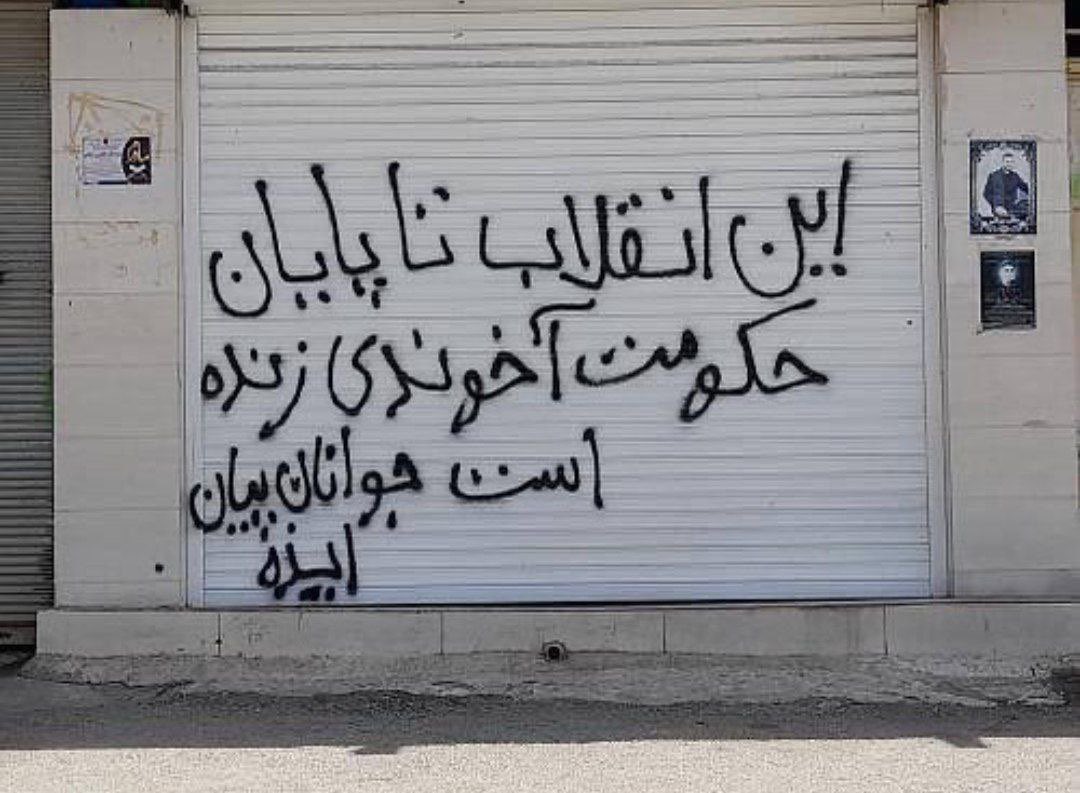 این انقلاب تا پایان
حکومت آخوندی زنده
است جوانان پیان
ایذه